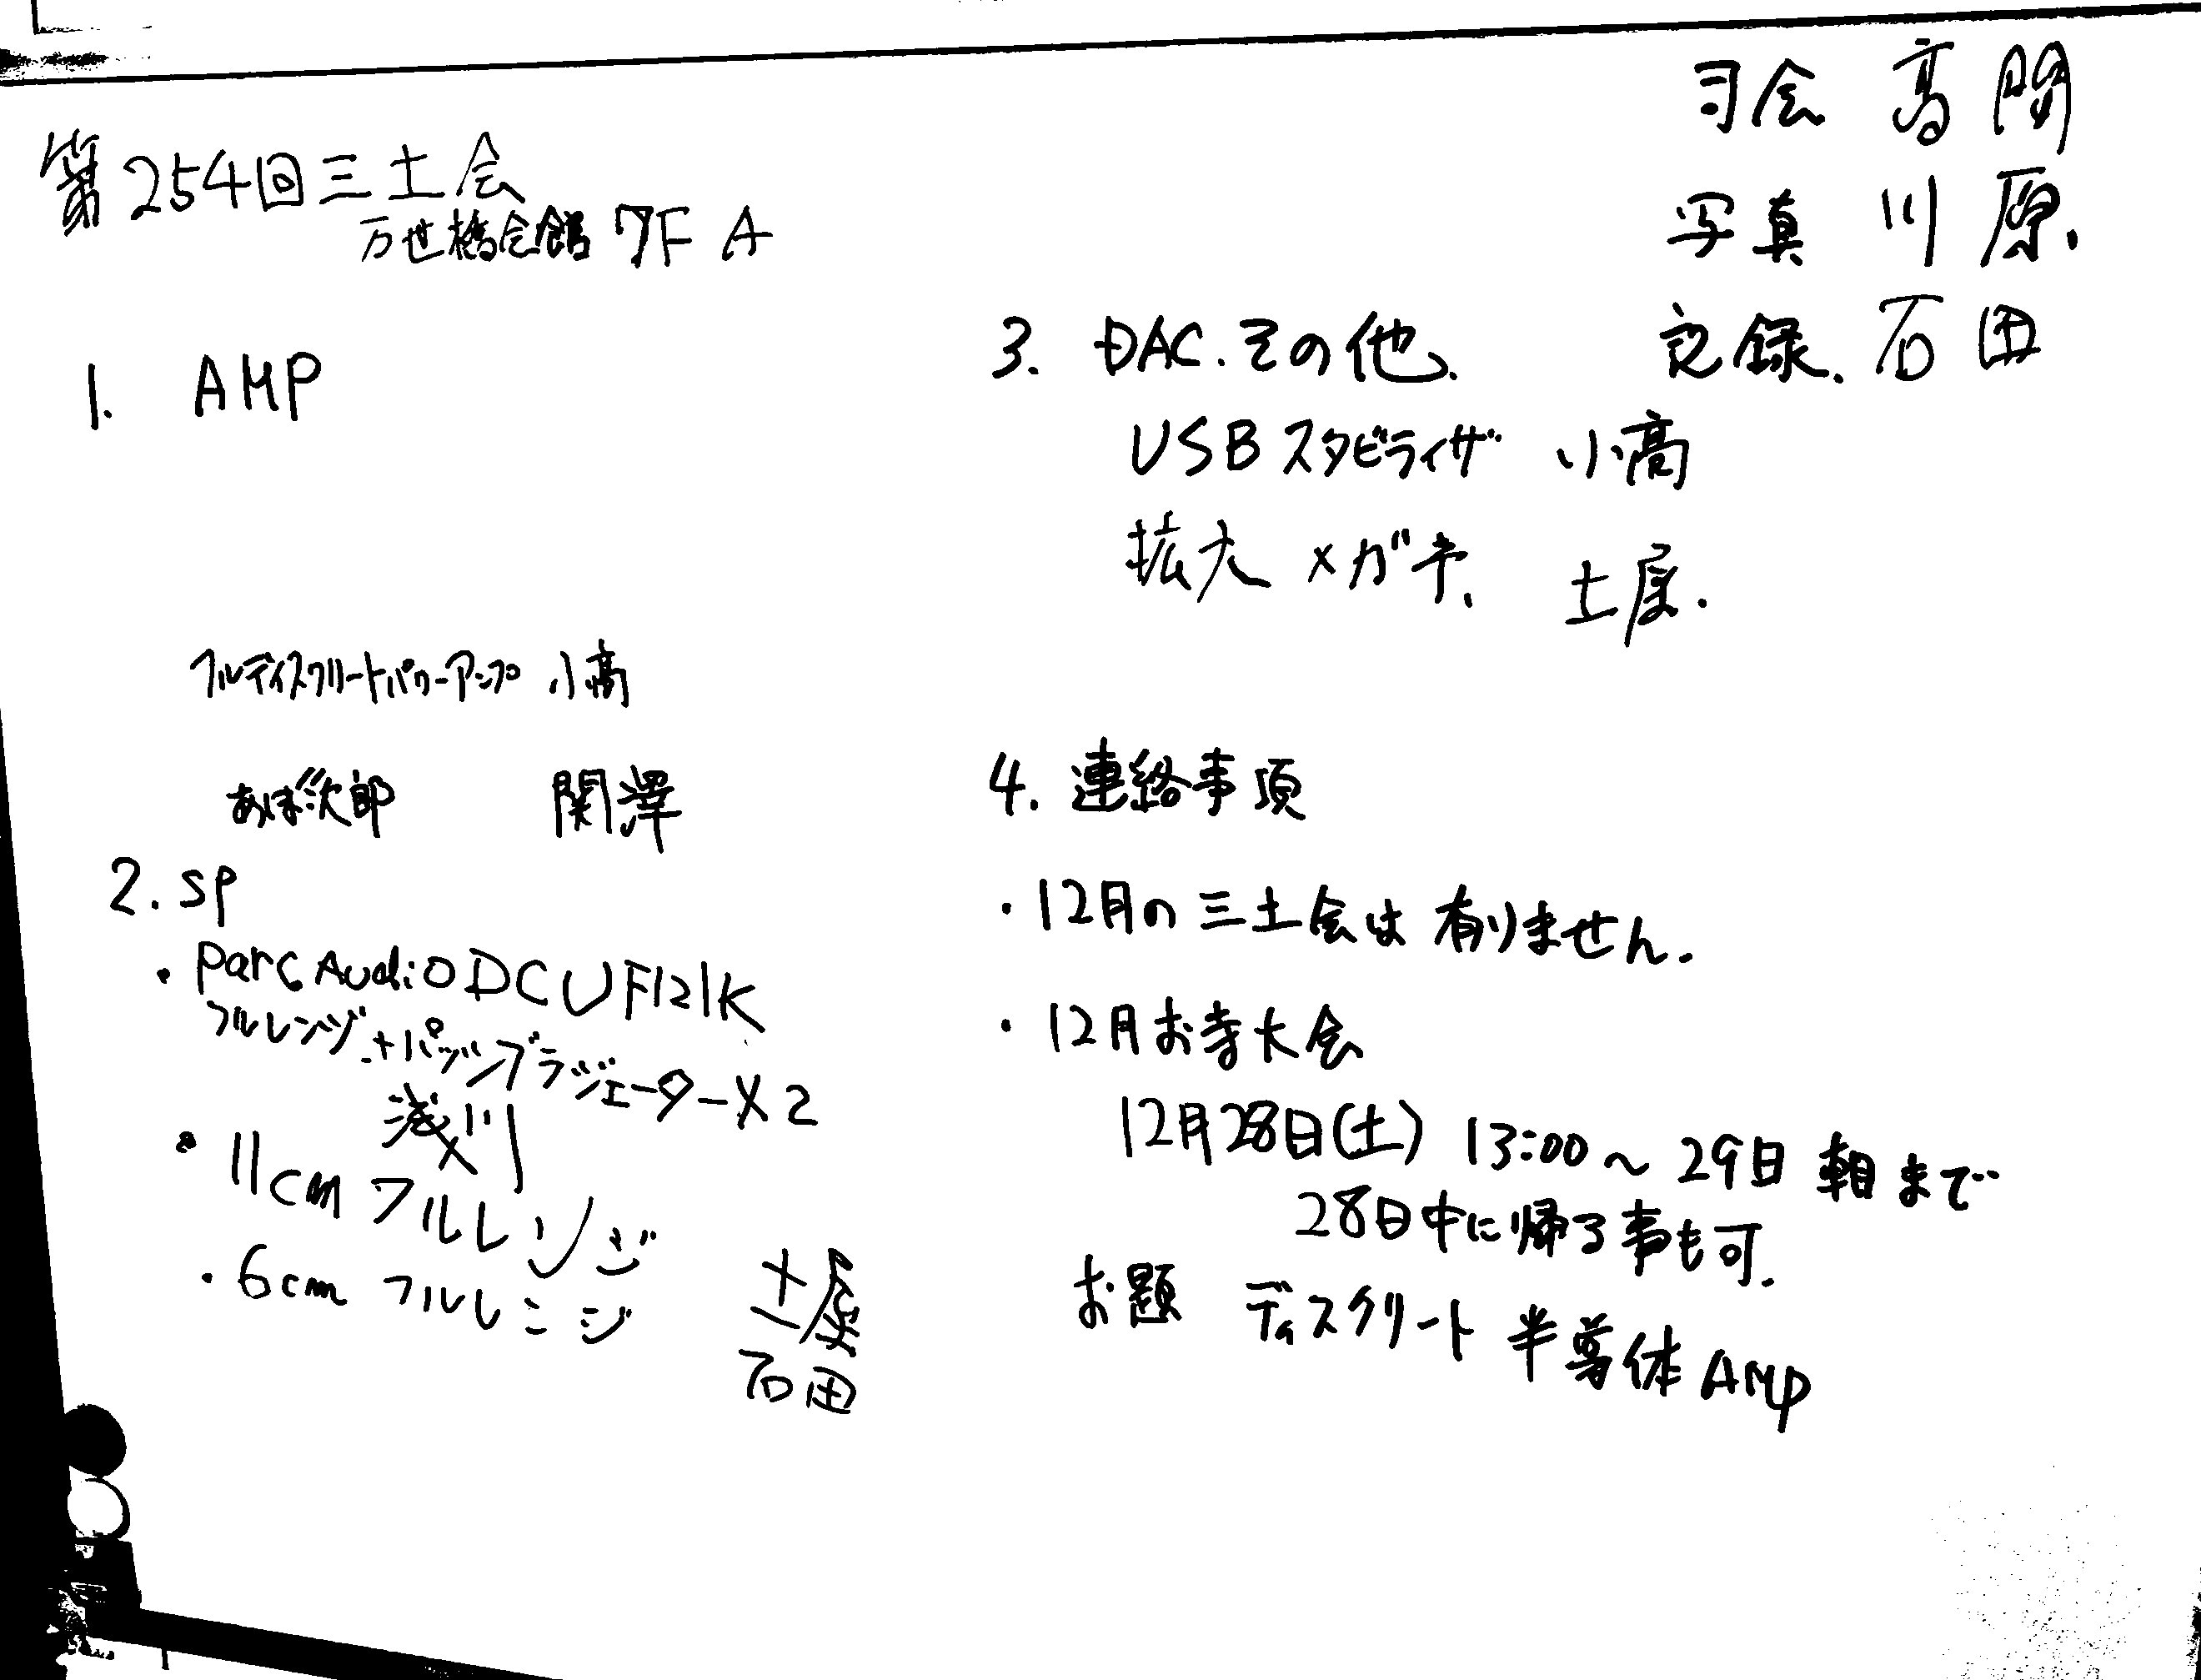 第254回三土会
万世橋会館 7F A
司会 高関
写真 川原.
記録. 石田
1. AMP
フルディスクリートパワーアンプ 小高
あぽ次郎 関澤
2. SP
・Parc Audio DCU F121K
フルレンジ+パッシブラジェーター×2
浅川
・11cm フルレンジ
・6cm フルレンジ
土屋
石田
3. DAC. その他.
USBスタビライザ 小高
拡大メガネ. 土屋.
4. 連絡事項
・12月の三土会は有りません.
・12月お寺大会
12月28日(土) 13:00〜29日 朝まで
28日中に帰る事も可.
お題 ディスクリート半導体AMP